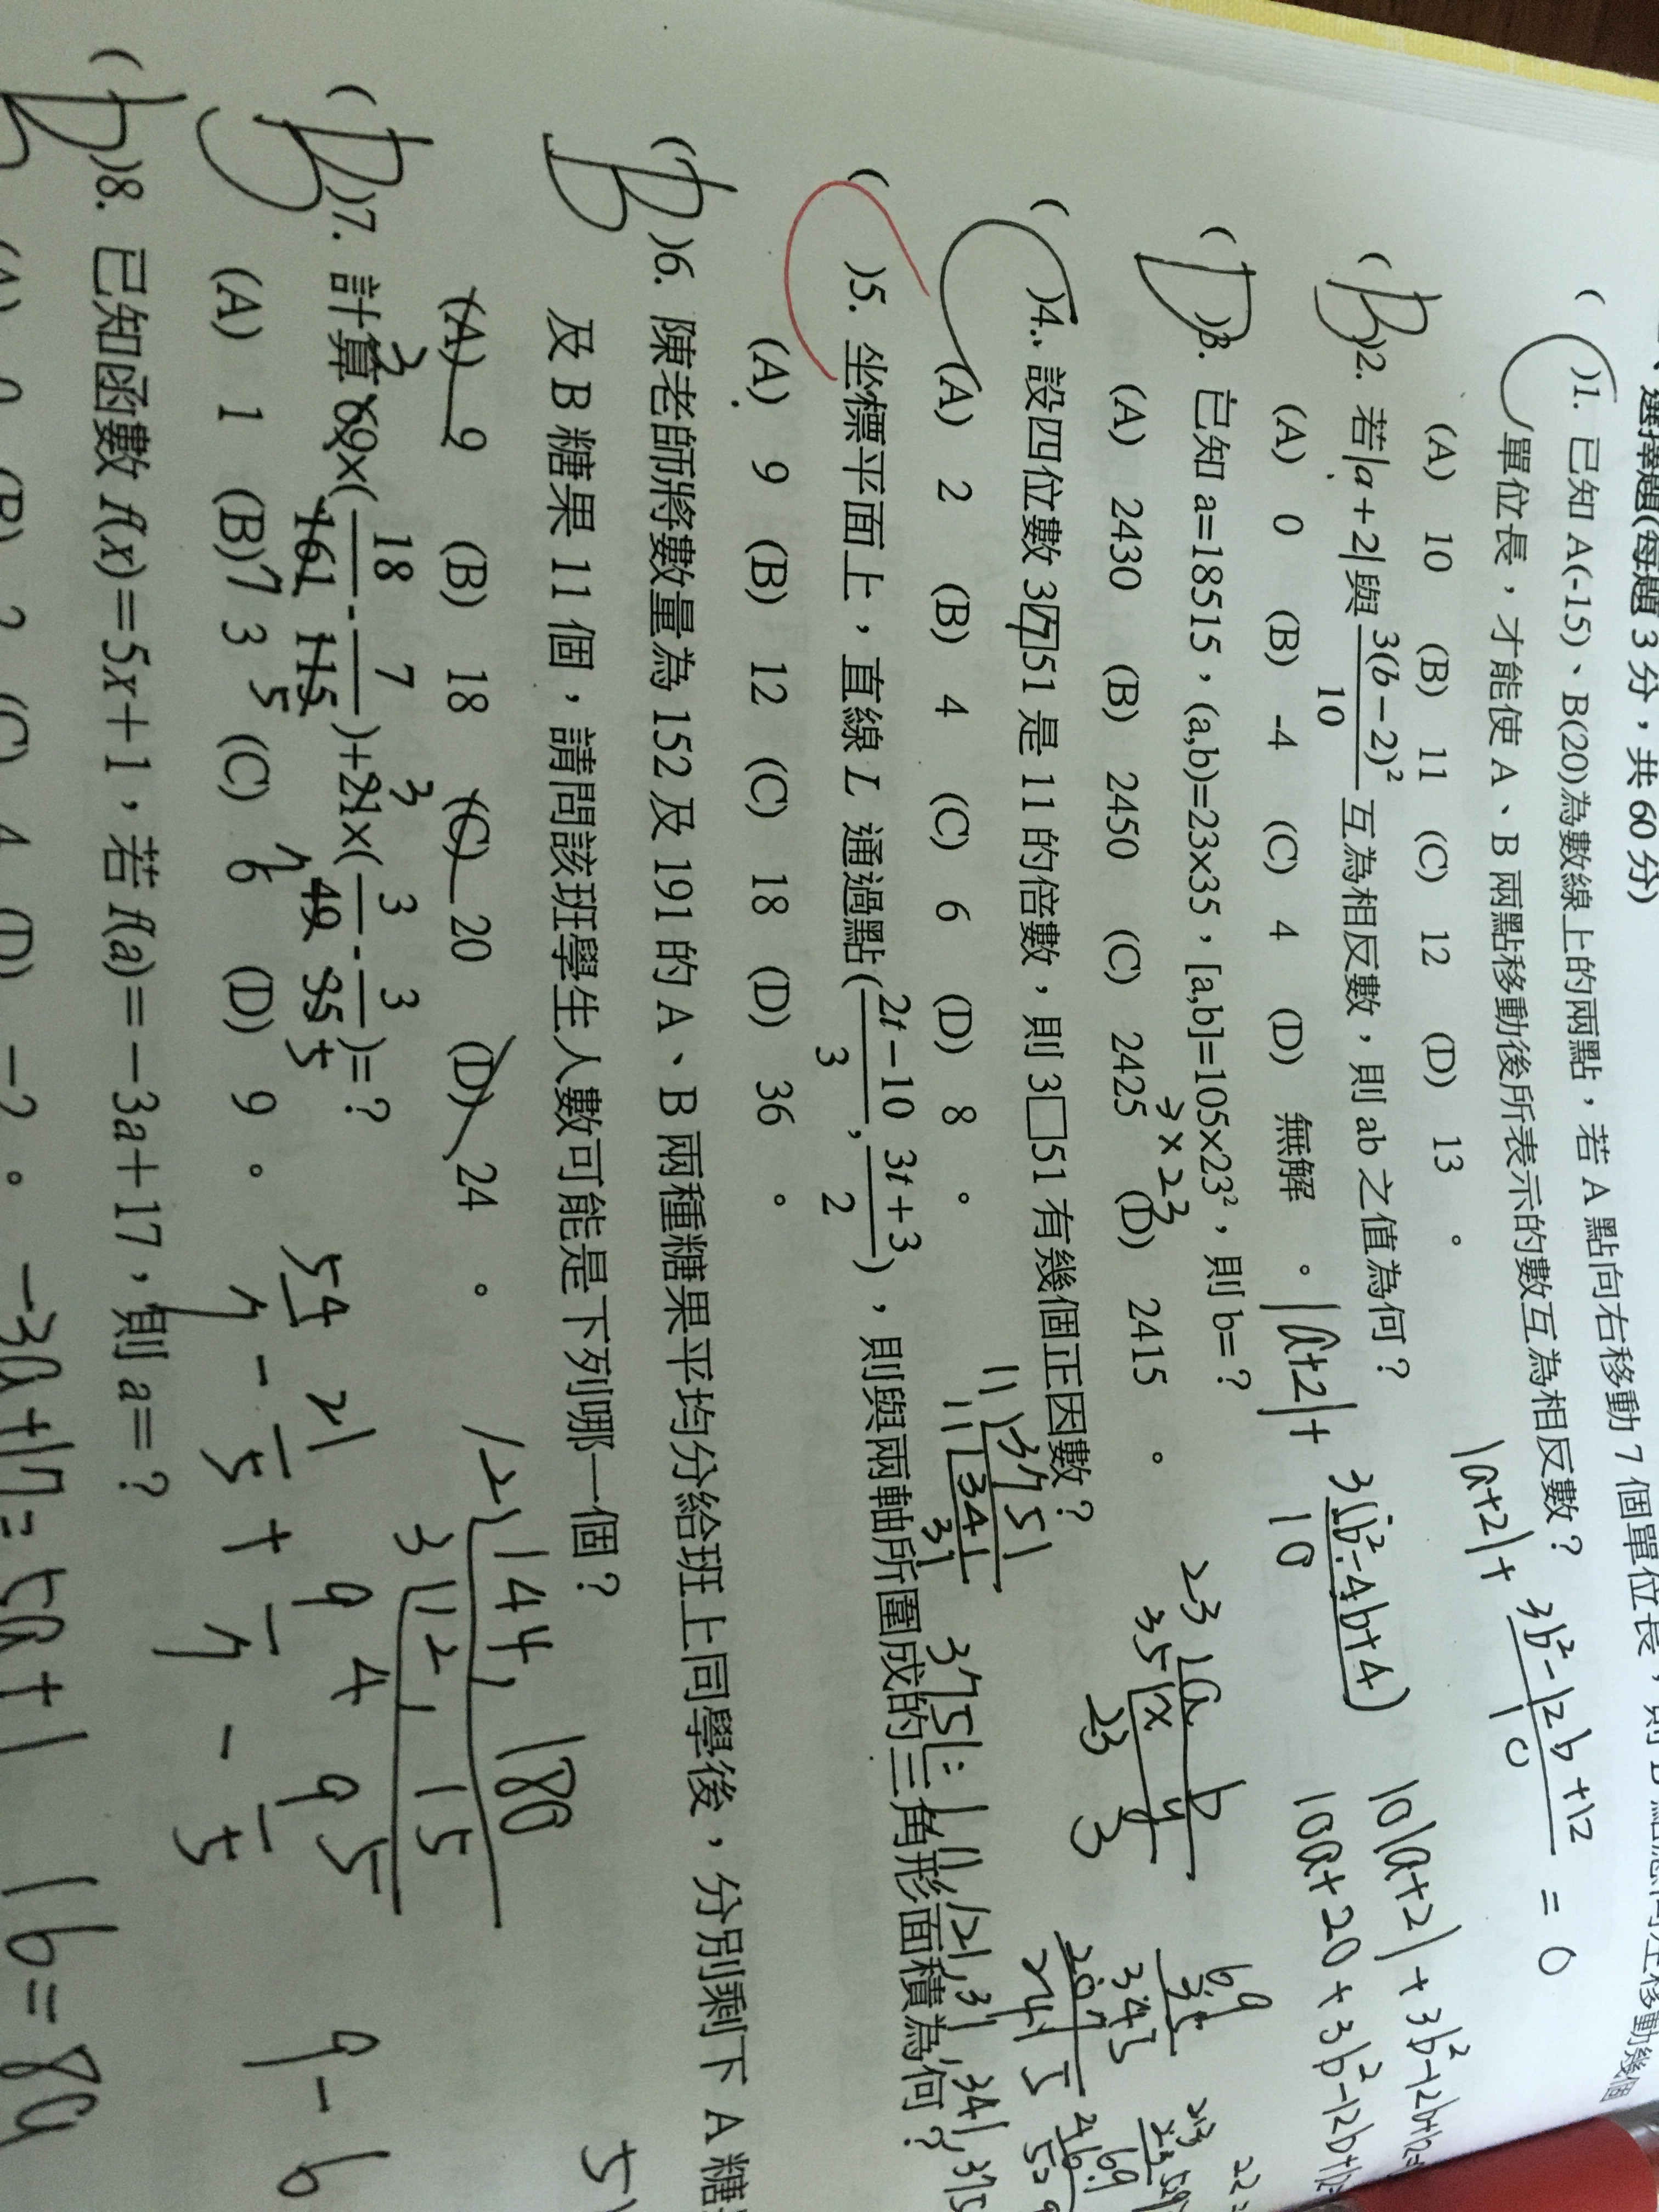 選擇題(每題 3 分，共 60 分)
( C )1. 已知 A(-15)、B(20)為數線上的兩點，若 A 點向右移動 7 個單位長，則 B 點應向左移動幾個
單位長，才能使 A、B 兩點移動後所表示的數互為相反數？
(A) 10 (B) 11 (C) 12 (D) 13 。
|a+2|+ 3b²-12b+12/10 = 0
( B )2. 若|a+2|與 3(b-2)²/10 互為相反數，則 ab 之值為何？
(A) 0 (B) -4 (C) 4 (D) 無解 。
|a+2|+ 3(b²-4b+4)/10
10|a+2|+3b²-12b+12=
10a+20+3b²-12b+12
( D )3. 已知 a=18515，(a,b)=23×35，[a,b]=105×23²，則 b=？
(A) 2430 (B) 2450 (C) 2425 (D) 2415 。
3×23
23 a b
35 x y
23 3
69
35
345
207
2415
( C )4. 設四位數 3□51 是 11 的倍數，則 3□51 有幾個正因數？
7
(A) 2 (B) 4 (C) 6 (D) 8 。
11 3751
11 341
31
3751: 1,11,121,31,341,375
( C )5. 坐標平面上，直線 L 通過點(2t-10/3, 3t+3/2)，則與兩軸所圍成的三角形面積為何？
(A) 9 (B) 12 (C) 18 (D) 36 。
( B )6. 陳老師將數量為 152 及 191 的 A、B 兩種糖果平均分給班上同學後，分別剩下 A 糖
及 B 糖果 11 個，請問該班學生人數可能是下列哪一個？
(A) 9 (B) 18 (C) 20 (D) 24 。
12 144, 180
3 12, 15
4 5
( B )7. 計算 69×(18/161 - 7/115)+21×(3/49 - 3/35)=？
3 7 5 3 7 5
(A) 1 (B) 3 (C) 6 (D) 9 。
54/7 - 21/5 + 9/7 - 9/5
9-6
( B )8. 已知函數 f(x)=5x+1，若 f(a)=-3a+17，則 a=？
(A) 0 (B) 2 (C) 4 (D) -2 。
-3a+17=5a+1 16=8a